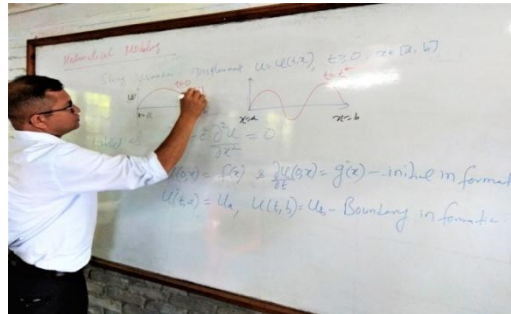 Mathematical Modeling
String Displacement u = u(t,x), t ≥ 0, x ∈ [a, b]
t=0
x=a
x=a x=b
∂²u/∂x² = 0
u(0,x) = f(x) & ∂u/∂t (0,x) = g(x) – initial informat
u(t,a) = Uₐ, u(t,b) = U_b – Boundary informatio